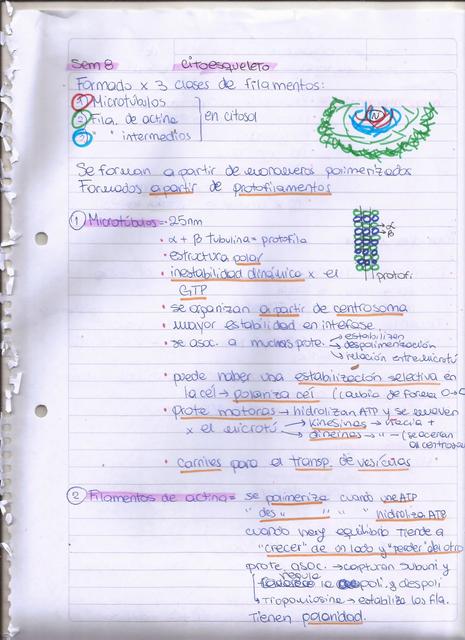 Sem 8 citoesqueleto
Formado x 3 clases de filamentos:
1 Microtúbulos
2 Fila. de actina
3 " " intermedios
en citosol
N
Se forman a partir de monomeros polimerizados
Formados a partir de protofilamentos
1 Microtúbulos = • 25nm
• α + β tubulina = protofila
• estructura polar
• inestabilidad dinámica x el
GTP
α
β
protofi
• se organizan a partir de centrosoma
• mayor estabilidad en interfase
• se asoc. a muchas prote. → estabilizan
→ despolimerización
→ relación entre microtú
• puede haber una estabilización selectiva en
la cél → polariza cél (cambia de forma O→
• prote motoras → hidrolizan ATP y se mueven
x el microtú → kinesinas → hacia +
→ dineinas → " - (se acercan
al centrosoma
• carriles para el transp. de vesículas
2 Filamentos de actina = se polimeriza cuando une ATP
" des " " " hidroliza ATP
cuando hay equilibrio tiende a
"crecer" de un lado y "perder" del otro
prote asoc. → capturan subuni y
regula
la poli. y despoli
→ Tropomiosina → estabiliza los fila.
Tienen polaridad.